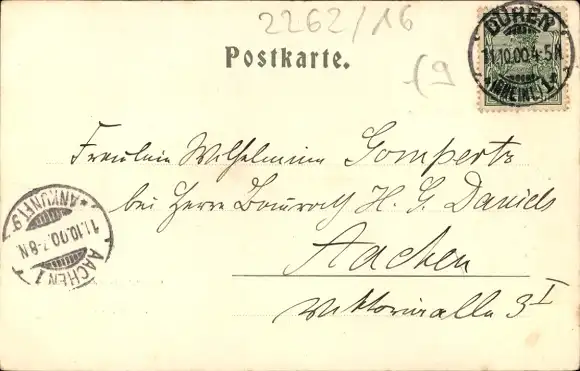 2262/16
Postkarte.
(9
DÜREN
11.10.00. 4-5N
*(RHEINL.) 1 f
Fräulein Wilhelmine Gompertz
bei Herrn Baurath H. G. Daniels
Aachen
Viktoriaallee 3 I
AACHEN 1
11.10.00. 7-8N
*ANKUNFT 9